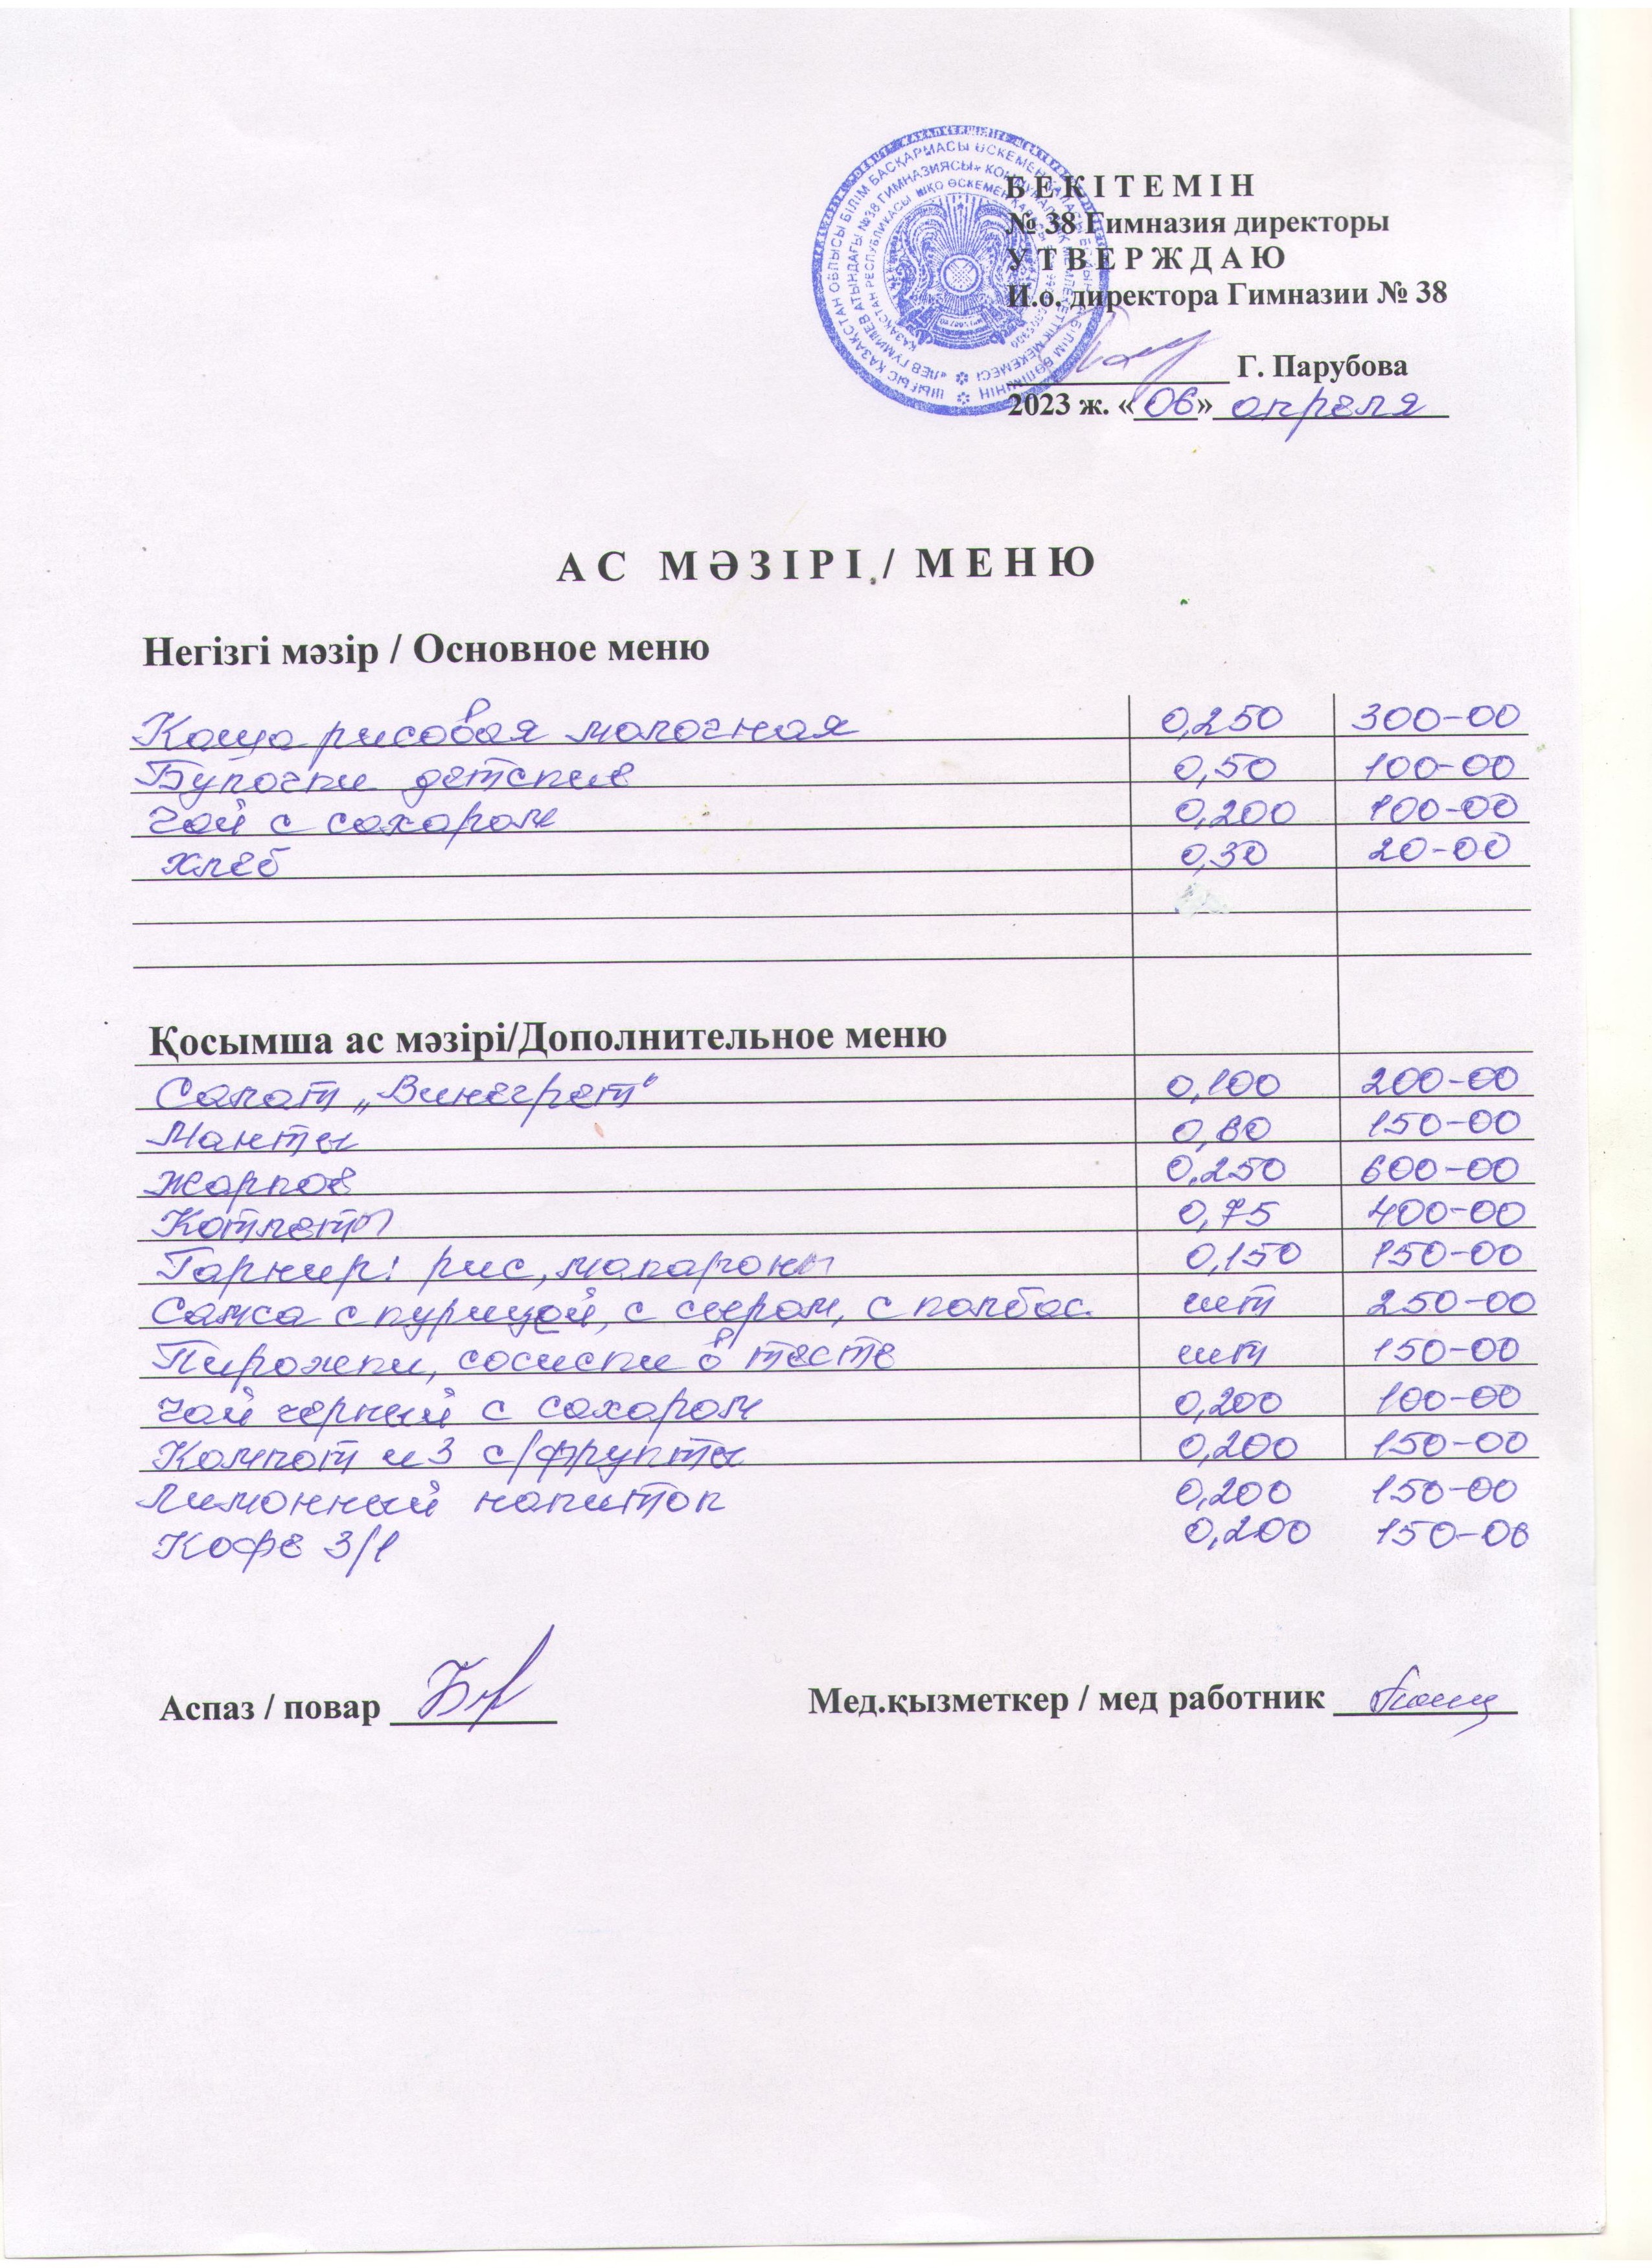 ШЫҒЫС ҚАЗАҚСТАН ОБЛЫСЫ БІЛІМ БАСҚАРМАСЫ ӨСКЕМЕН ҚАЛАСЫ БІЛІМ БӨЛІМІНІҢ
«ЛЕВ ГУМИЛЕВ АТЫНДАҒЫ №38 ГИМНАЗИЯСЫ» КОММУНАЛДЫҚ МЕМЛЕКЕТТІК МЕКЕМЕСІ
ҚАЗАҚСТАН РЕСПУБЛИКАСЫ ШҚО ӨСКЕМЕН ҚАЛАСЫ
Б Е К І Т Е М І Н
№ 38 Гимназия директоры
У Т В Е Р Ж Д А Ю
И.о. директора Гимназии № 38
Г. Парубова
2023 ж. «06» апреля
А С М Ә З І Р І / М Е Н Ю
Негізгі мәзір / Основное меню
Каша рисовая молочная 0,250 300-00
Булочки детские 0,50 100-00
Чай с сахаром 0,200 100-00
Хлеб 0,30 20-00
Қосымша ас мәзірі/Дополнительное меню
Салат „Винегрет" 0,100 200-00
Манты 0,80 150-00
Жаркое 0,250 600-00
Котлеты 0,75 400-00
Гарнир: рис, макароны 0,150 150-00
Самса с курицей, с сыром, с колбас. шт 250-00
Пирожки, сосиски в тесте шт 150-00
Чай черный с сахаром 0,200 100-00
Компот из с/фрукты 0,200 150-00
Лимонный напиток 0,200 150-00
Кофе 3/1 0,200 150-00
Аспаз / повар Мед.қызметкер / мед работник